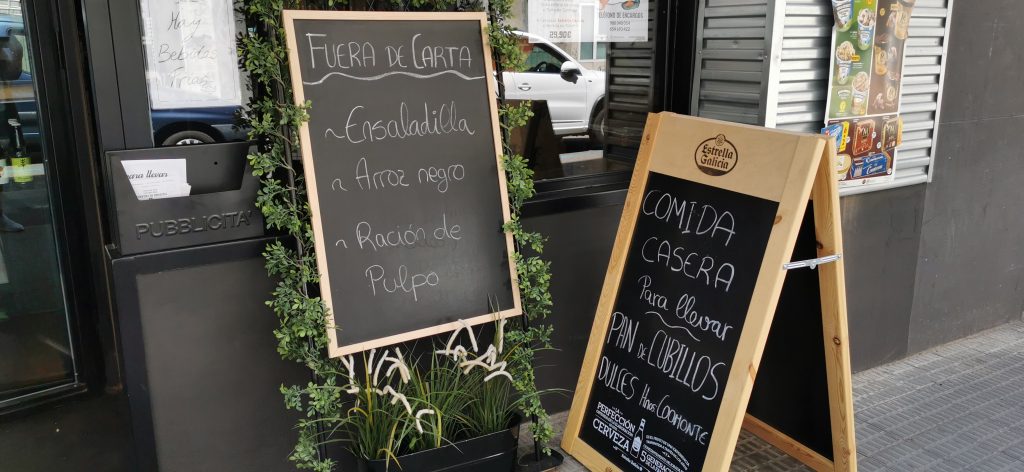 Hay
Bebidas
Frías
para llevar
PUBBLICITA'
FUERA DE CARTA
~Ensaladilla
~ Arroz negro
~ Ración de
Pulpo
29,90€
TELÉFONO DE ENCARGOS
Estrella
Galicia
COMIDA
CASERA
Para llevar
PAN DE CUBILLOS
DULCES Hnos COOMONTE
LA
PERFECCIÓN
CERVEZA
5 GENERACIONES